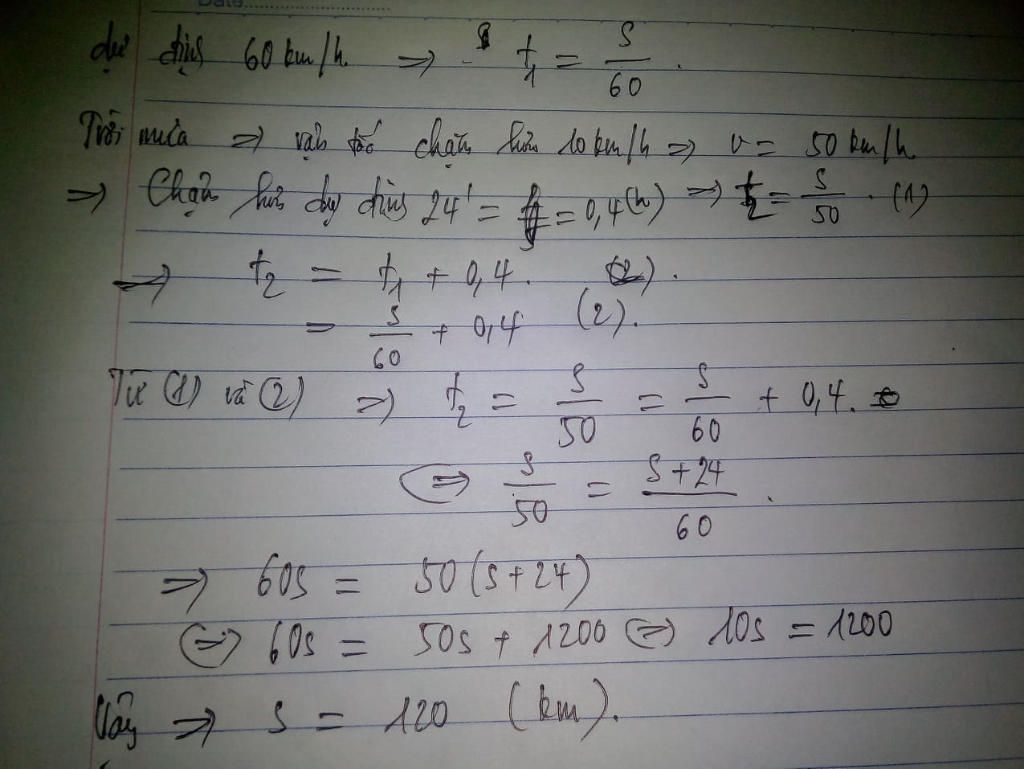 Date
dự định 60 km/h. => t₁ = s/60.
Trời mưa => vận tốc chậm hơn 10 km/h => v = 50 km/h.
=> Chậm hơn dự định 24' = 0,4 (h) => t₂ = s/50. (1)
=> t₂ = t₁ + 0,4.
= s/60 + 0,4 (2).
Từ (1) và (2) => t₂ = s/50 = s/60 + 0,4.
<=> s/50 = (s + 24)/60.
=> 60s = 50(s + 24)
<=> 60s = 50s + 1200 <=> 10s = 1200
Vậy => s = 120 (km).